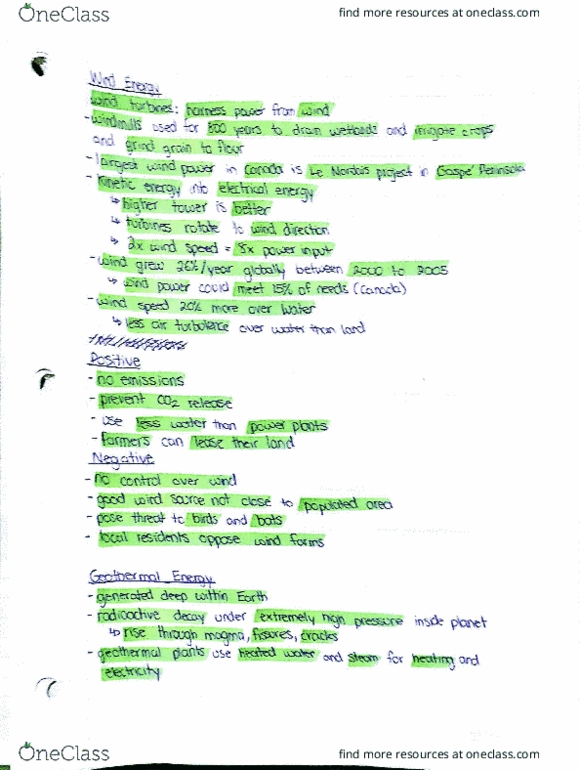 OneClass
find more resources at oneclass.com
Wind Energy
wind turbines: harness power from wind
-windmills used for 800 years to drain wetlands and irrigate crops
and grind grain to flour
- largest wind power in Canada is Le Nordais project in Gaspé Peninsula
- kinetic energy into electrical energy
↳ higher tower is better
↳ turbines rotate to wind direction
↳ 2x wind speed = 8x power input
-wind grew 26%/year globally between 2000 to 2005
↳ wind power could meet 15% of needs (Canada)
-wind speed 20% more over water
↳ less air turbulence over water than land
Positive
- no emissions
- prevent CO2 release
- use less water than power plants
- farmers can lease their land
Negative
- no control over wind
- good wind source not close to populated area
- pose threat to birds and bats
- local residents oppose wind farms
Geothermal Energy
- generated deep within Earth
- radioactive decay under extremely high pressure inside planet
↳ rise through magma, fissures, cracks
- geothermal plants use heated water and steam for heating and
electricity
OneClass
find more resources at oneclass.com